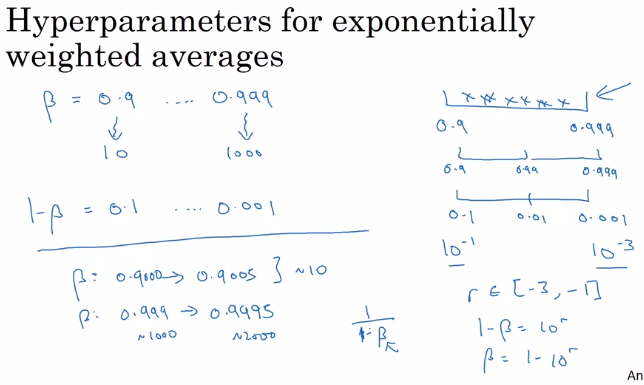 Hyperparameters for exponentially
weighted averages
β = 0.9 .... 0.999
10 1000
1-β = 0.1 .... 0.001
β: 0.9000 → 0.9005 } ~10
β: 0.999 → 0.9995
~1000 ~2000
1
1-β
0.9 0.999
0.9 0.99 0.999
0.1 0.01 0.001
10⁻¹ 10⁻³
r ∈ [-3, -1]
1-β = 10ʳ
β = 1-10ʳ
An